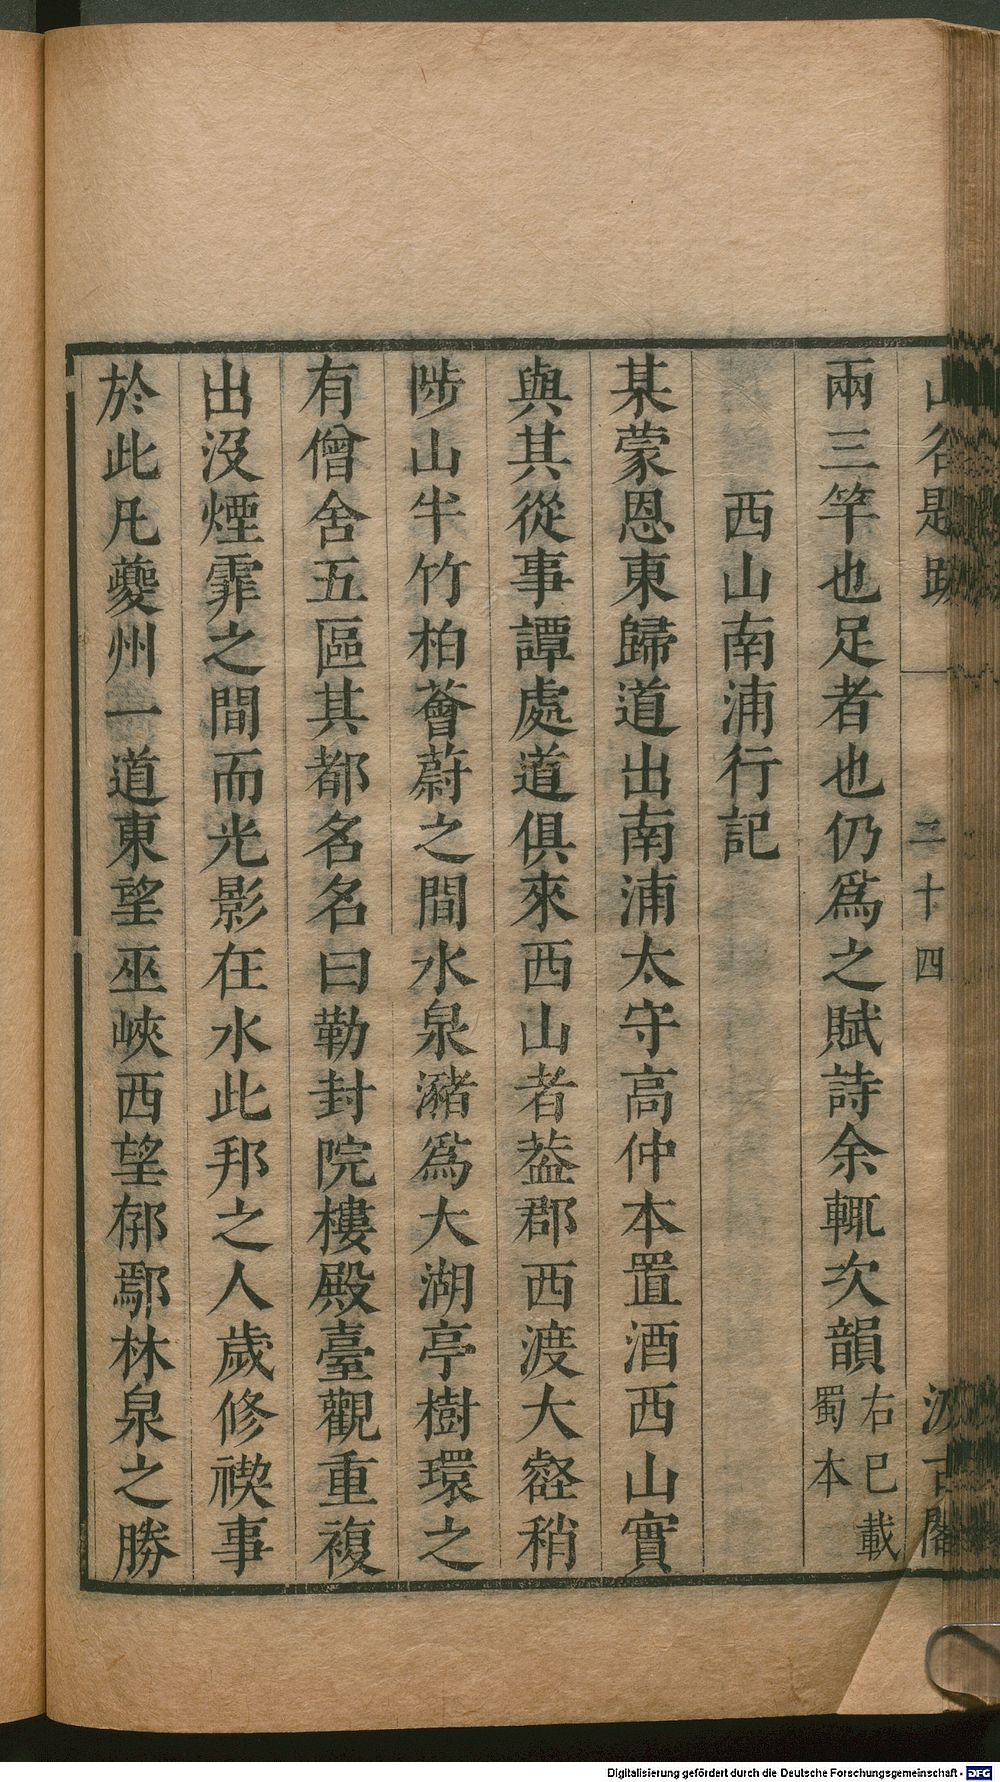 山谷題跋 二十四 汲古閣
兩三竿也足者也仍爲之賦詩余輒次韻右已載蜀本
西山南浦行記
某蒙恩東歸道出南浦太守高仲本置酒西山實
與其從事譚處道俱來西山者葢郡西渡大壑稍
陟山半竹柏薈蔚之間水泉瀦爲大湖亭樹環之
有僧舍五區其都名名曰勒封院樓殿臺觀重複
出沒煙霏之間而光影在水此邦之人歲修禊事
於此凡夔州一道東望巫峽西望郁鄢林泉之勝
Digitalisierung gefördert durch die Deutsche Forschungsgemeinschaft - DFG